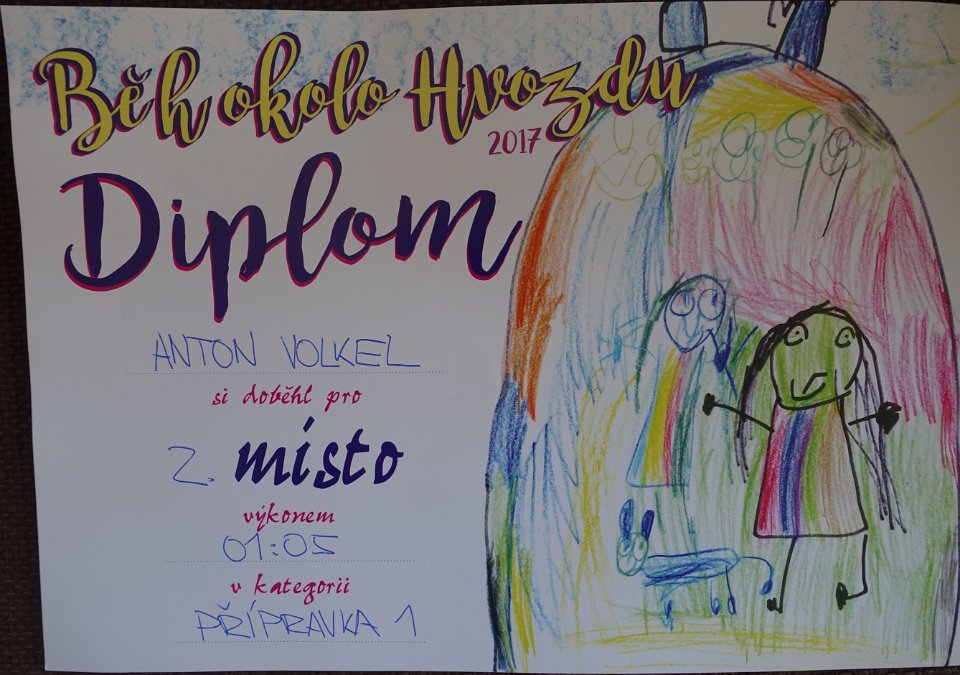 Běh okolo Hvozdu
2017
Diplom
ANTON VOLKEL
si doběhl pro
2. místo
výkonem
01:05
v kategorii
PŘÍPRAVKA 1